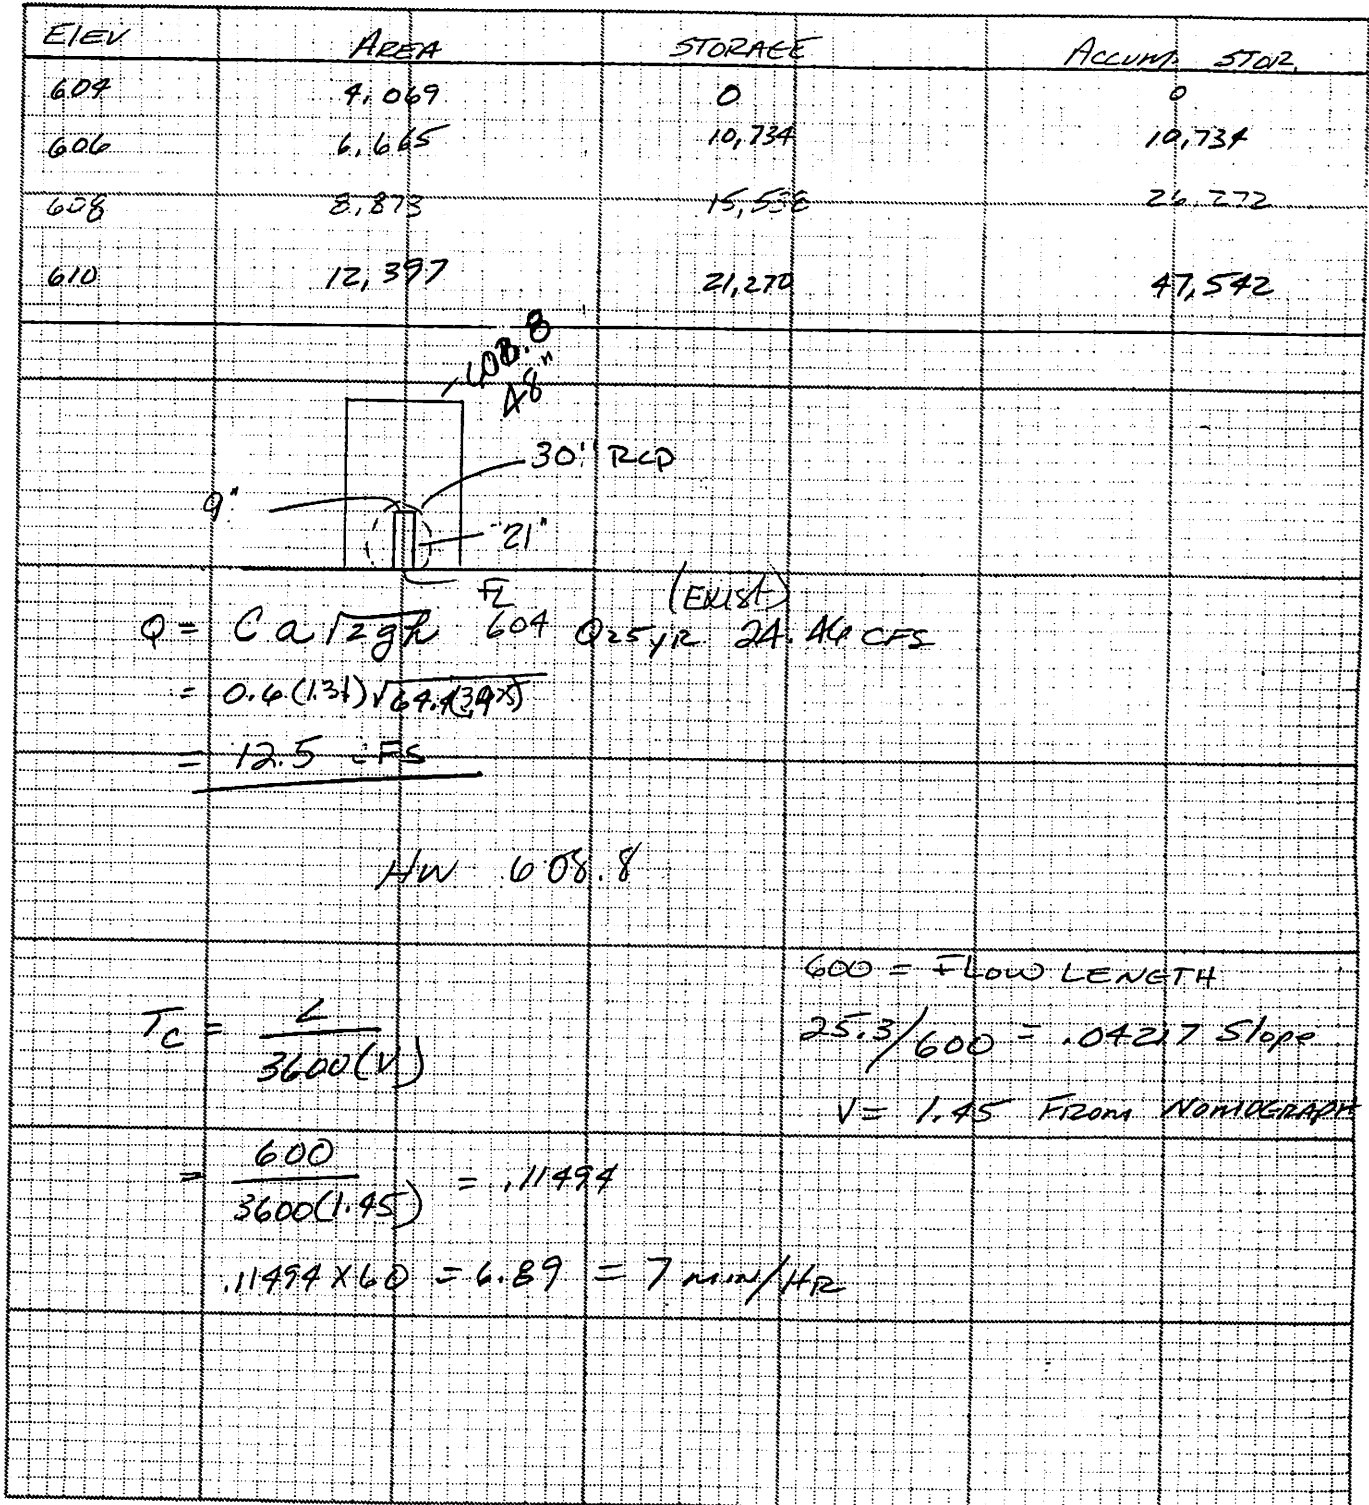 Elev AREA STORAGE ACCUM. STOR.
604 4,069 0 0
606 6,665 10,734 10,734
608 8,873 15,538 26,272
610 12,397 21,270 47,542
608.8
48"
30" RCP
9"
21"
FL
604
(EXIST)
Q = Ca√2gh Q25yr 24.46 CFS
= 0.6(1.31)√64.4(3.9)
= 12.5 CFS
HW 608.8
600 = FLOW LENGTH
Tc = L / 3600(V)
25.3/600 = .04217 Slope
V = 1.45 FROM NOMOGRAPH
= 600 / 3600(1.45) = .11494
.11494 X 60 = 6.89 = 7 MIN/HR